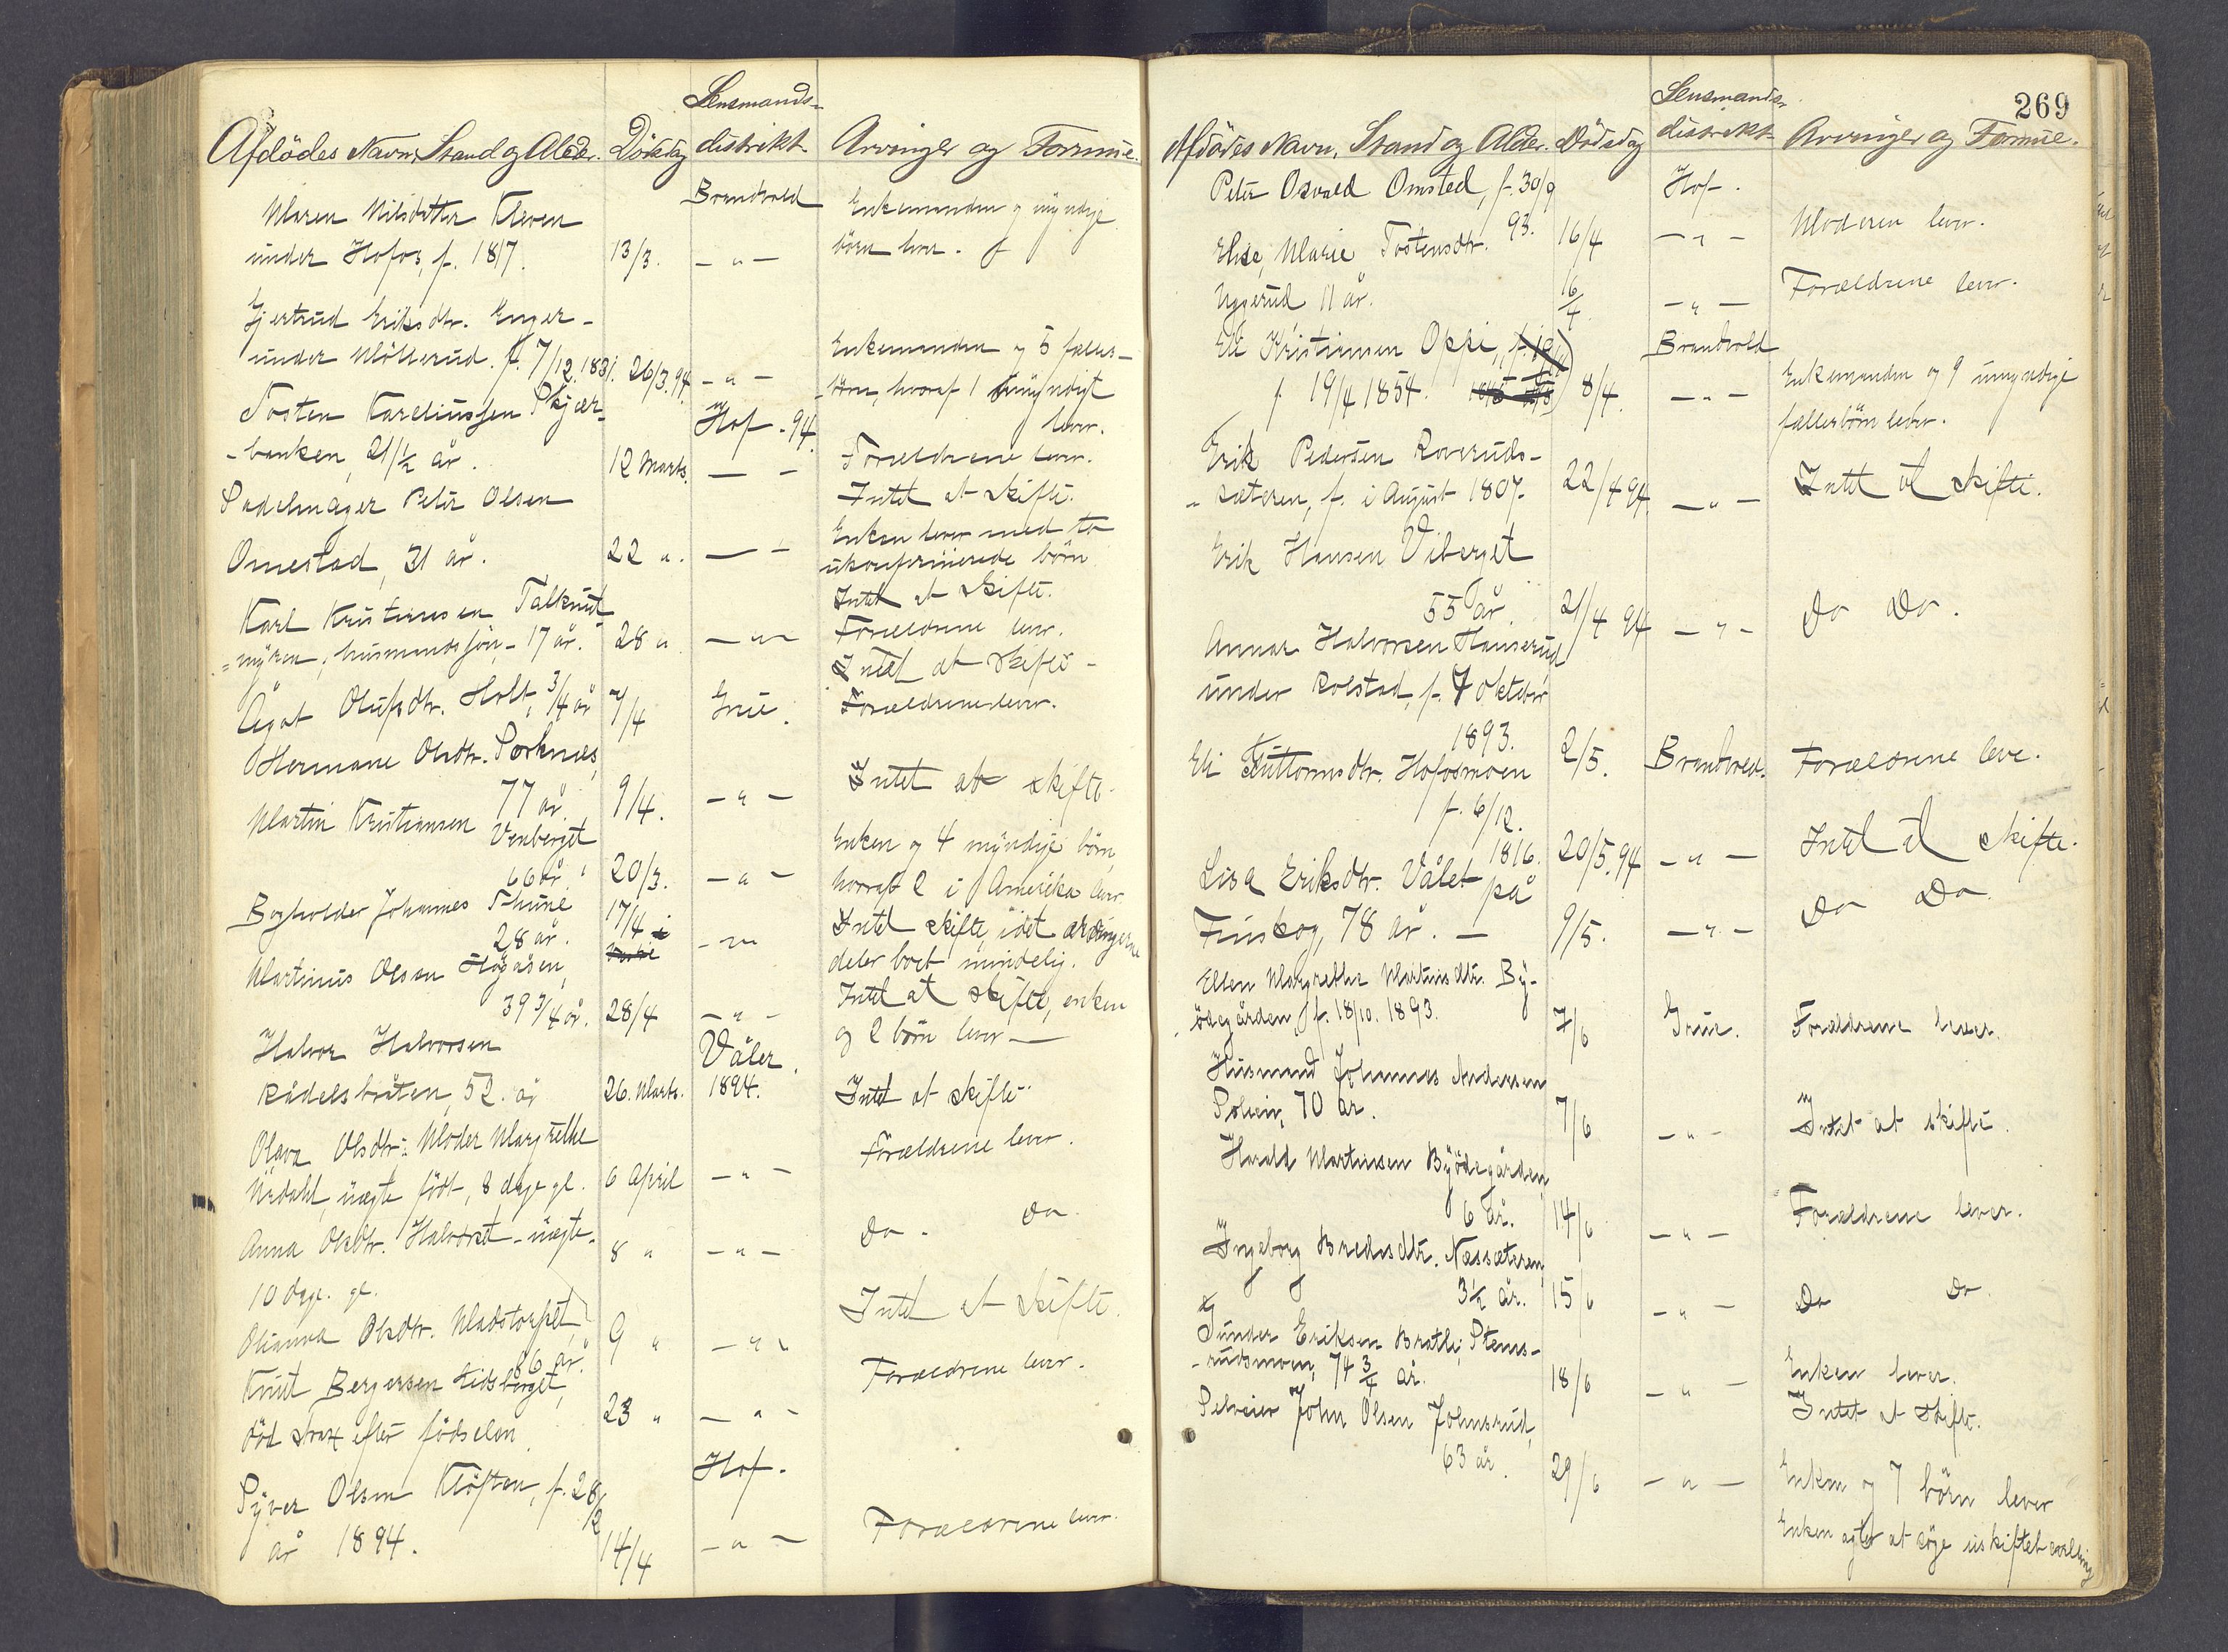 Lensmands-
Afdödes Navn, Stand og Alder. Dödsdag distrikt. Arvinger og Formue.
Brandvold
Maren Nilsdatter Kleven Enkemanden og myndige
under Hofos, f. 1817. 13/3. — " — börn lever.
Gjertrud Eriksdtr. Enger-
under Möllerud. f. 7/12. 1831. 26/3.94. — " — Enkemanden og 5 fælles-
-börn, hvoraf 1 umyndigt
lever.
Tosten Kareliussen Skjær- Hof. 94.
-banken, 21 1/2 år. 12 Marts. — — Forældrene lever.
Intet at skifte.
Sadelmager Peter Olsen
Omestad, 31 år. 22 ". — — Enken lever med to
ukonfirmerede börn
Intet at skifte.
Karl Kristiansen Falknut
=myren, husmandssön, 17 år. 28 " — " — Forældrene lever.
Intet at skifte -
Ågot Olufsdtr. Holt, 3/4 år 7/4 Grue. Forældrene lever.
Hermane Olsdtr. Sorknæs,
77 år. 9/4. — " — Intet at skifte.
Martin Kristiansen
Venberget
66 år. 20/3. — " — Enken og 4 myndige börn,
hvoraf 2 i Amerika lever
Bogholder Johannes Thune
28 år. 17/4 — " — Intet skifte, idet arvingerne
deler boet mindelig.
Martinus Olsen Högåsen,
39 3/4 år. 28/4 — " — Intet at skifte, enken
og 2 börn lever —
Halvor Halvorsen Våler.
Rådelsbråten, 52. år 26. Marts. 1894. Intet at skifte.
Olava Olsdtr: Moder Margrethe
Nedahl, uægte födt, 8 dage gl. 6 April — " — Forældrene lever.
Anna Olsdtr. Halvöret - uægte. 8 " — " — Do. Do.
10 dage. gl.
Olianna Olsdtr. Madstorpet,
86 år. 9 " — " — Intet at skifte.
Knut Bergersen Lidsberget,
död strax efter födselen. 23 " — " — Forældrene lever.
Hof.
Syver Olsen Klöften, f. 28/2
år 1894. 14/4 — " — Forældrene lever.
269
Lensmands-
Afdödes Navn, Stand og Alder. Dödsdag distrikt. Arvinger og Formue.
Peter Osvald Omsted, f. 30/9 Hof.
93. 16/4 — " — Moderen lever.
Else Marie Tostensdtr.
Uggerud 11 år. 16/4 — " — Forældrene lever.
Eli Kristiansen Oppi, Brandvold
f. 19/4 1854. 8/4. — " — Enkemanden og 9 umyndige
fællesbörn lever.
Erik Pedersen Roveruds-
-sæteren, f. i August 1807. 22/4 94. — " — Intet at skifte.
Erik Hansen Viberget
55 år. 21/4 94 — " — Do Do.
Annar Halvorsen Hanserud
under Rolstad, f. 7 oktober
1893. 2/5. Brandvold. Forældrene leve.
Eli Guttormsdtr. Hofosmoen
f. 6/12.
1816. 20/5.94 — " — Intet at skifte.
Lisa Eriksdtr. Vålet på
Finskog, 78 år. — 9/5. — " — Do Do.
Ellen Margrethe Martinsdtr. By-
ödegården, f. 18/10. 1893. 7/6 Grue. Forældrene lever.
Husmand Johannes Andersen
Solvein, 70 år. 7/6 — " — Intet at skifte.
Harald Martinsen Byödegården,
6 år. 14/6 — " — Forældrene lever.
Ingeborg Bredesdtr. Næssæteren,
3 1/2 år. 15/6 — " — Do Do.
Gunder Eriksen Bratli, Stems-
-rudsmoen, 74 3/4 år. 18/6 — " — Enken lever.
Intet at skifte.
Selveier John Olsen Johnsrud,
63 år. 29/6 — " — Enken og 7 börn lever
Enken agter at söge uskiftet bevilling